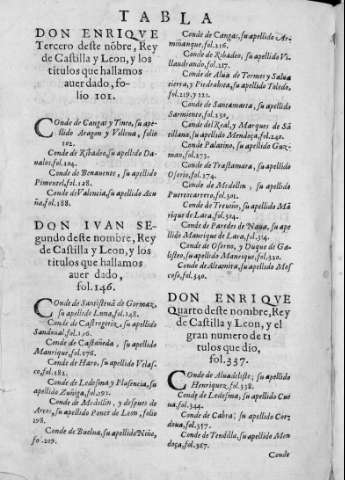 TABLA
DON ENRIQVE
Tercero deste nõbre, Rey
de Castilla y Leon, y los
titulos que hallamos
auer dado, fo-
lio 101.
Conde de Cangas y Tineo, su ape-
llido Aragon y Villena, folio
102.
Conde de Ribadeo, su apellido Da-
ualos, fol. 104.
Conde de Benauente, su apellido
Pimentel, fol. 128.
Conde de Valencia, su apellido Acu-
ña, fol. 188.
DON IVAN SE-
gundo deste nombre, Rey
de Castilla y Leon, y los
titulos que hallamos
auer dado,
fol. 146.
Conde de Santisteuã de Gormaz,
su apellido Luna, fol. 148.
Conde de Castrogeriz, su apellido
Sandoual, fol. 176.
Conde de Castañeda, su apellido
Manrique, fol. 176.
Conde de Haro, su apellido Velas-
co, fol. 182.
Conde de Ledesma y Plasencia, su
apellido Zuñiga, fol. 192.
Conde de Medellin, y despues de
Arcos, su apellido Ponce de Leon, folio
198.
Conde de Buelna, su apellido Niño,
fo. 219.
Conde de Cangas, su apellido Ar-
miñanque, fol. 216.
Conde de Ribadeo, su apellido Vi-
llandrando, fol. 217.
Conde de Alua de Tormes y Salua
tierra, y Piedrahita, su apellido Toledo,
fol. 219. y 222.
Conde de Santamarta, su apellido
Sarmiento, fol. 230.
Conde del Real, y Marques de Sã
tillana, su apellido Mendoça, fol. 240.
Conde Palatino, su apellido Guz-
man, fol. 273.
Conde de Trastamara, su apellido
Osorio, fol. 274.
Conde de Medellin, su apellido
Puertocarrero, fol. 301.
Conde de Treuiño, su apellido Mã
rique de Lara, fol. 314.
Conde de Paredes de Naua, su ape-
llido Manrique de Lara, fol. 314.
Conde de Osorno, y Duque de Ga-
listeo, su apellido Manrique, fol. 330.
Conde de Altamira, su apellido Mos
coso, fol. 340.
DON ENRIQVE
Quarto deste nombre, Rey
de Castilla y Leon, y el
gran numero de ti
tulos que dio,
fol. 337.
Conde de Aluadeliste; su apellido
Henriquez, fol. 338.
Conde de Ledesma, su apellido Cu
eua, fol. 344.
Conde de Cabra; su apellido Cor-
doua, fol. 357.
Conde de Tendilla, su apellido Men-
doça, fol. 367.
Conde